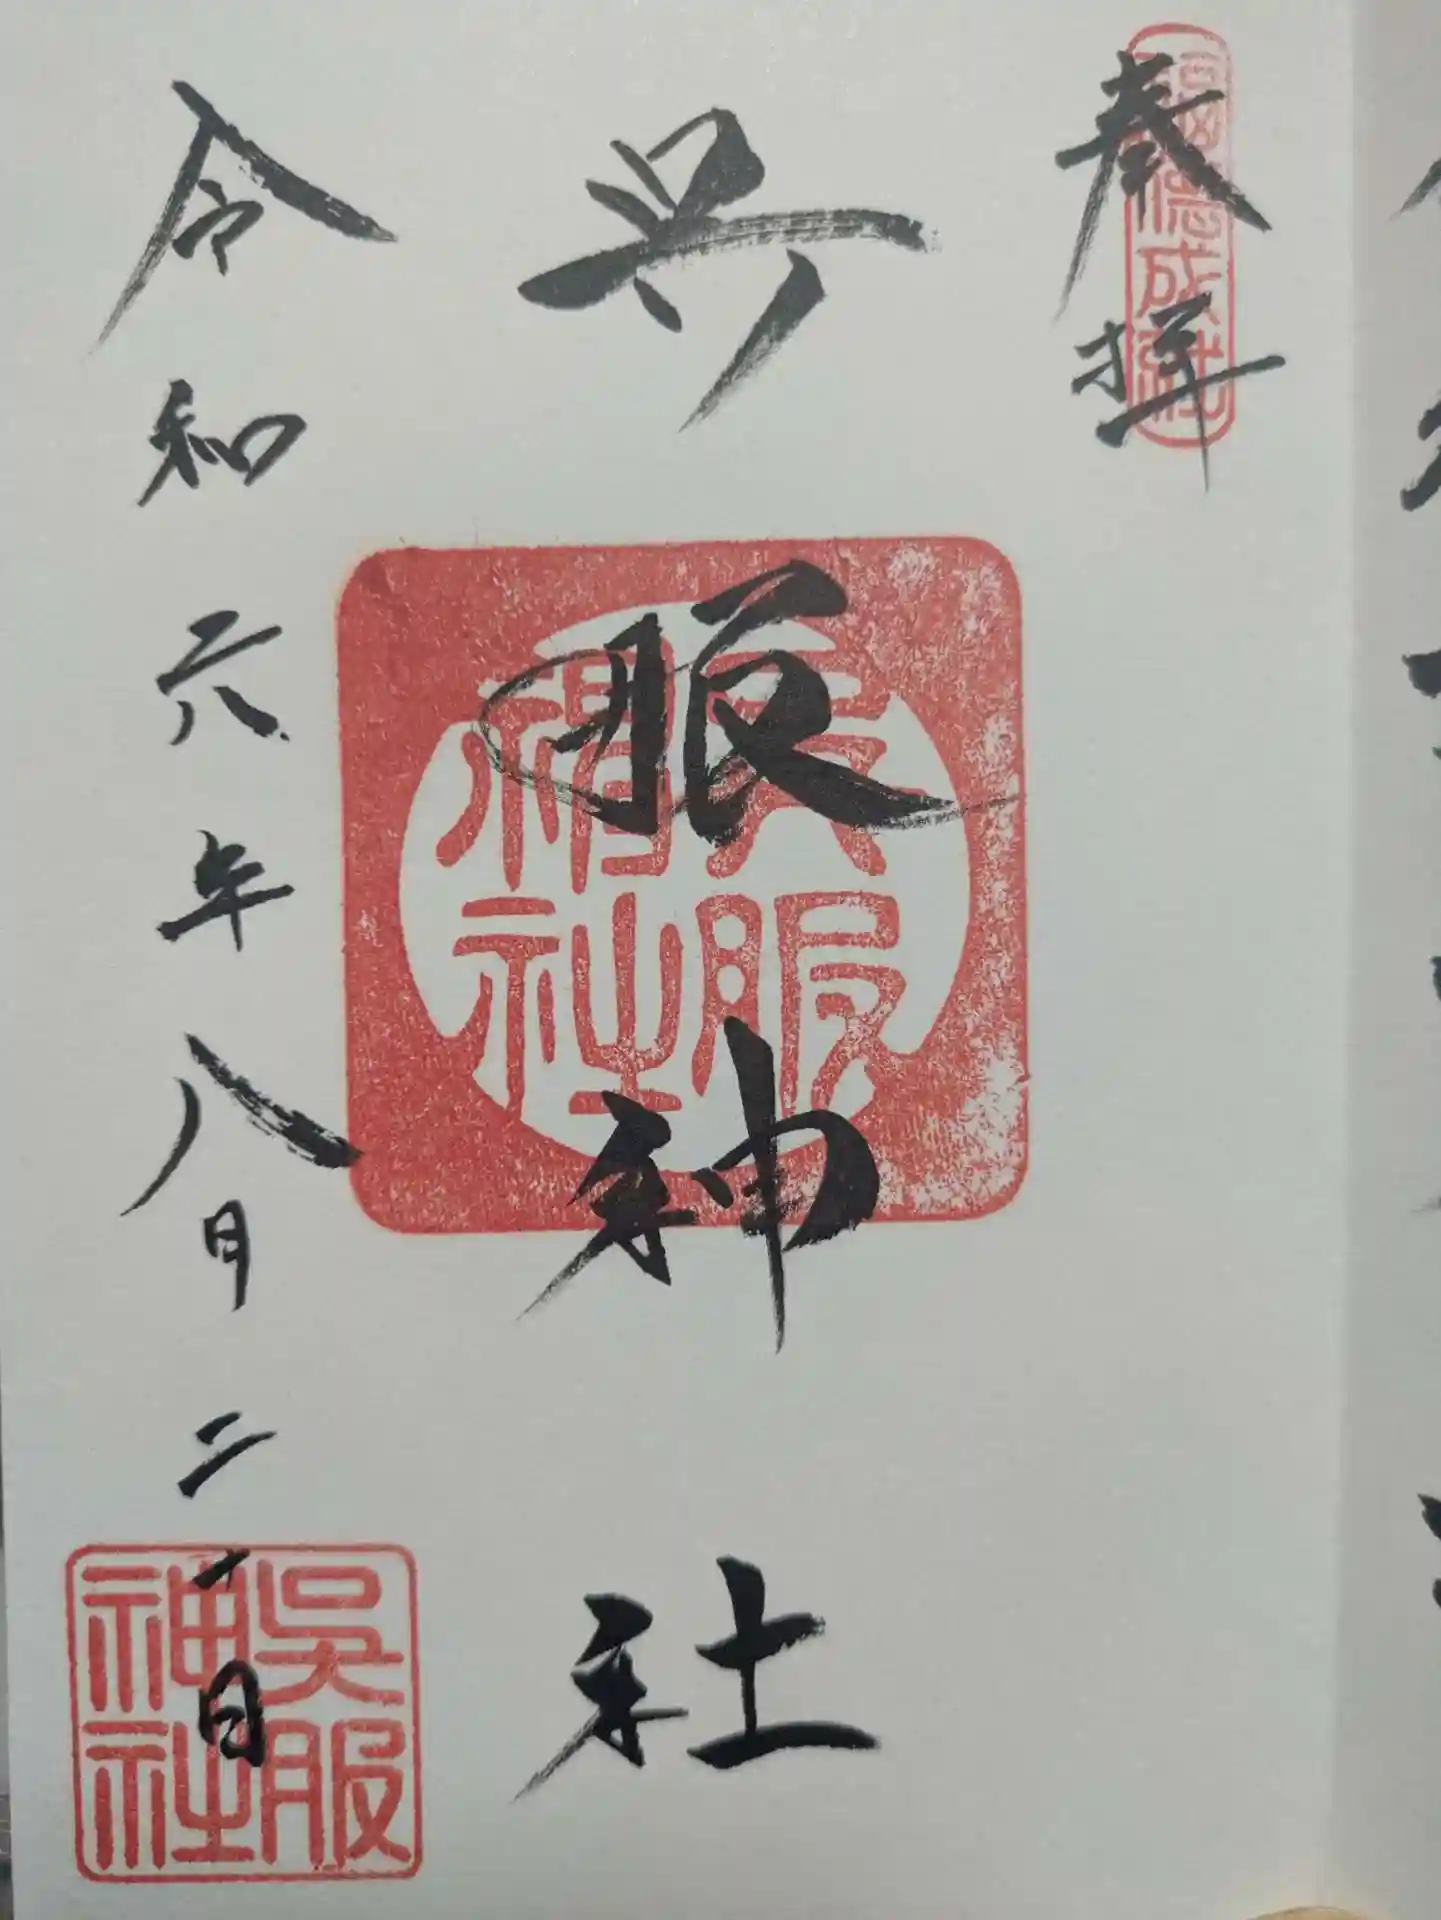 奉拝
福徳成就
呉服神社
呉服神社
令和六年八月二一日
吳服神社